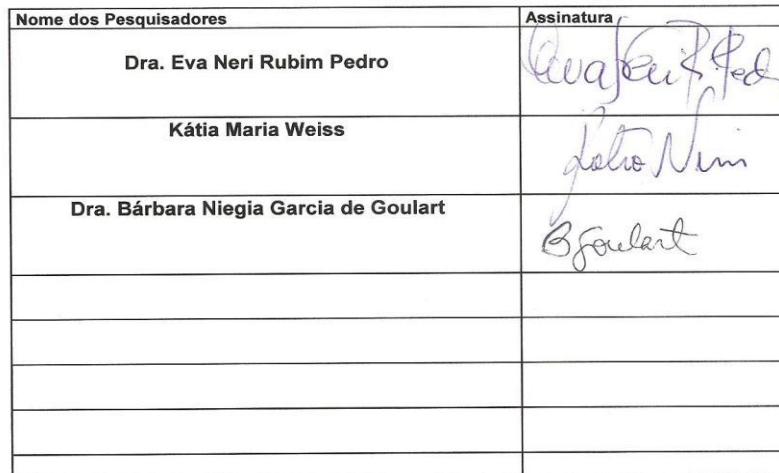 Nome dos Pesquisadores Assinatura
Dra. Eva Neri Rubim Pedro Eva Neri R. Ped
Kátia Maria Weiss
Dra. Bárbara Niegia Garcia de Goulart BGoulart